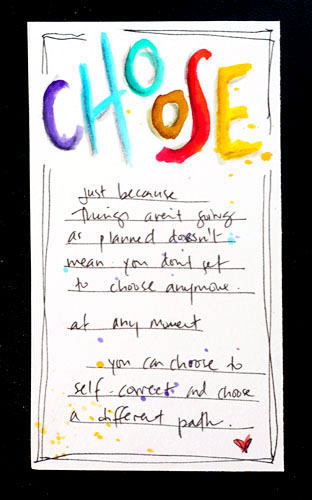 CHOOSE
just because
things aren't going
as planned doesn't
mean you don't get
to choose anymore.
at any moment
you can choose to
self-correct and choose
a different path.